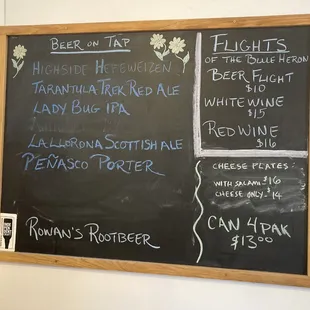 BEER ON TAP
HIGHSIDE HEFEWEIZEN
TARANTULA TREK RED ALE
LADY BUG IPA
LA LLORONA SCOTTISH ALE
PEÑASCO PORTER
ROWAN'S ROOTBEER
FLIGHTS
OF THE BLUE HERON
BEER FLIGHT
$10
WHITE WINE
$15
RED WINE
$16
CHEESE PLATES:
WITH SALAMI $16
CHEESE ONLY $14
CAN 4 PAK
$13.00